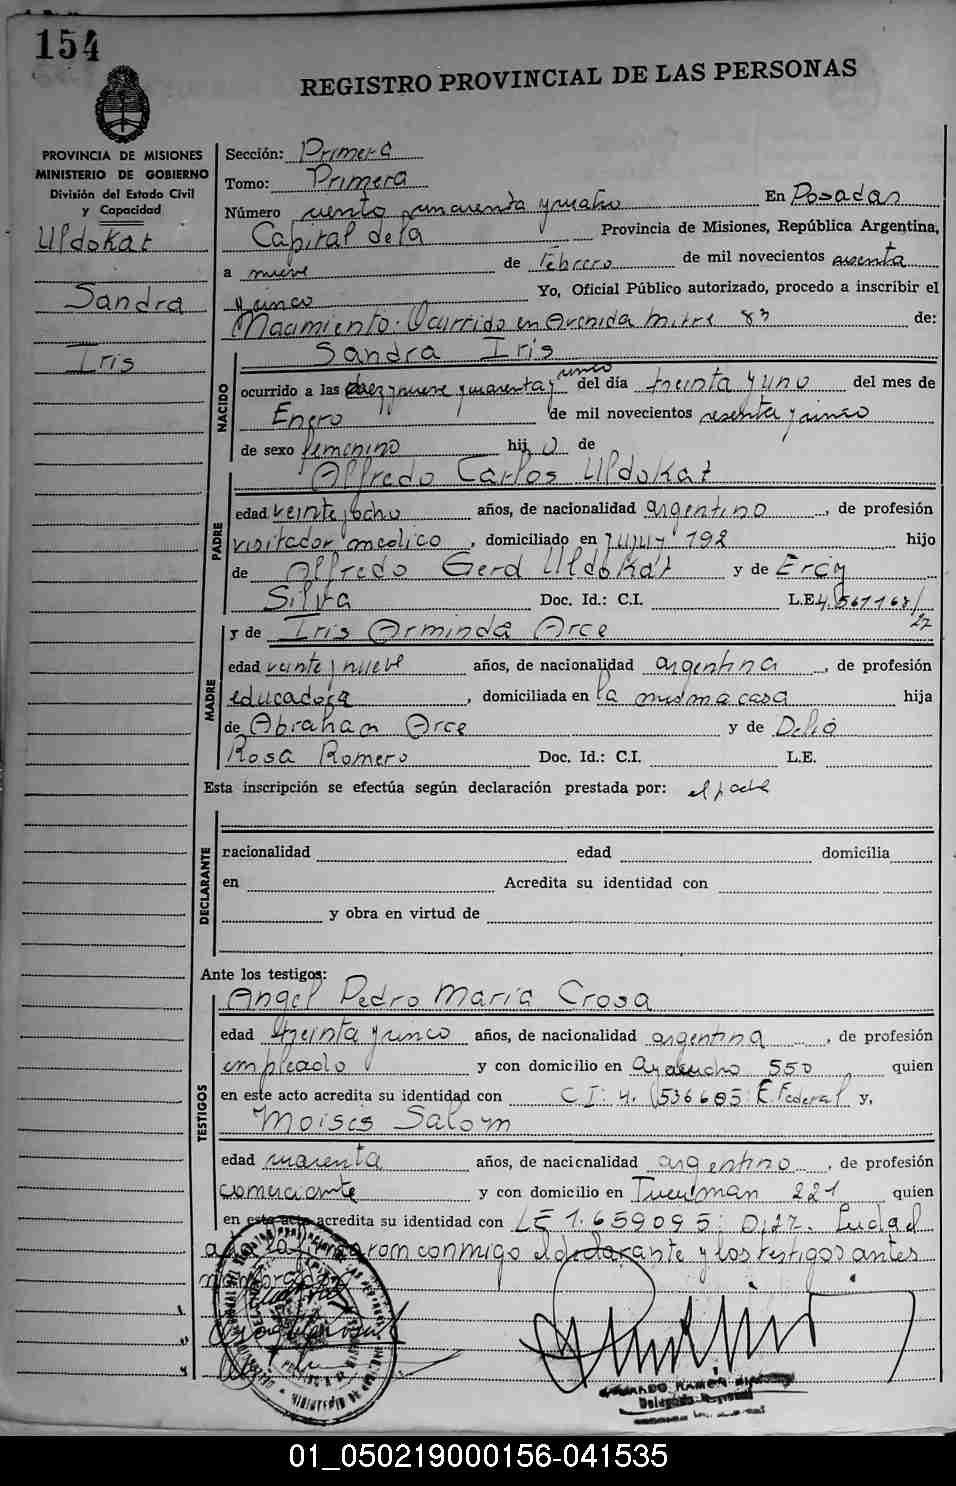 154
REGISTRO PROVINCIAL DE LAS PERSONAS
PROVINCIA DE MISIONES
MINISTERIO DE GOBIERNO
División del Estado Civil
y Capacidad
Uldokat
Sandra
Iris
Sección: Primera
Tomo: Primera
Número ciento cincuenta y cuatro En Posadas
Capital de la Provincia de Misiones, República Argentina,
a nueve de Febrero de mil novecientos sesenta
y cinco Yo, Oficial Público autorizado, procedo a inscribir el
Nacimiento. Ocurrido en Avenida Mitre 83 de:
Sandra Iris
NACIDO
ocurrido a las diez y nueve y cuarenta y cinco del día treinta y uno del mes de
Enero de mil novecientos sesenta y cinco
de sexo femenino hij de
Alfredo Carlos Uldokat
PADRE
edad veinte y ocho años, de nacionalidad argentino, de profesión
visitador medico, domiciliado en Jujuy 192 hijo
de Alfredo Gerd Uldokat y de Ercy
Silva Doc. Id.: C.I. L.E.
y de Iris Arminda Arce
MADRE
edad veinte y nueve años, de nacionalidad argentina, de profesión
educadora, domiciliada en la misma casa hija
de Abraham Arce y de Delia
Rosa Romero Doc. Id.: C.I. L.E.
Esta inscripción se efectúa según declaración prestada por: el padre
DECLARANTE
racionalidad edad domicilia
en Acredita su identidad con
y obra en virtud de
Ante los testigos:
Angel Pedro Maria Crosa
TESTIGOS
edad treinta y cinco años, de nacionalidad argentina, de profesión
empleado y con domicilio en Ayacucho 550 quien
en este acto acredita su identidad con C I: 4.536685 P. Federal y,
Moises Salom
edad cuarenta años, de nacicnalidad argentino, de profesión
comerciante y con domicilio en Tucuman 221 quien
en este acto acredita su identidad con LE 1.659095: D.27.
firmaron conmigo el declarante y los testigos antes
Delegado
01_050219000156-041535